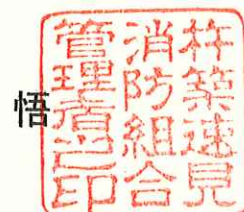 悟
杵築速見
消防組合
管理者之印